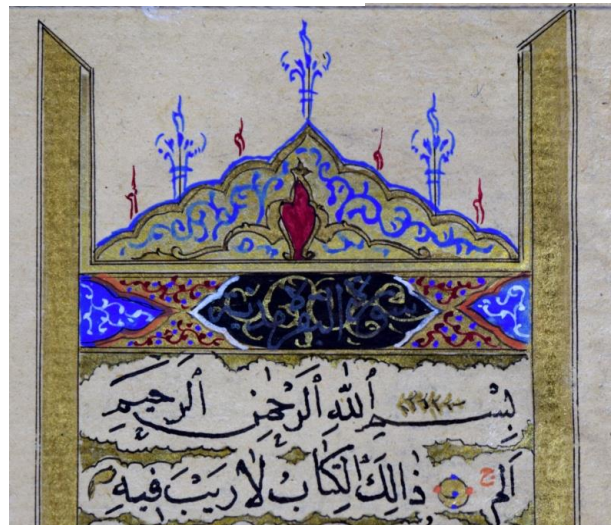 سورة البقرة مدنية
بِسْمِ اللّٰهِ الرَّحْمٰنِ الرَّحِيمِ
الم ج ذٰلِكَ الْكِتَابُ لَا رَيْبَ فِيهِ